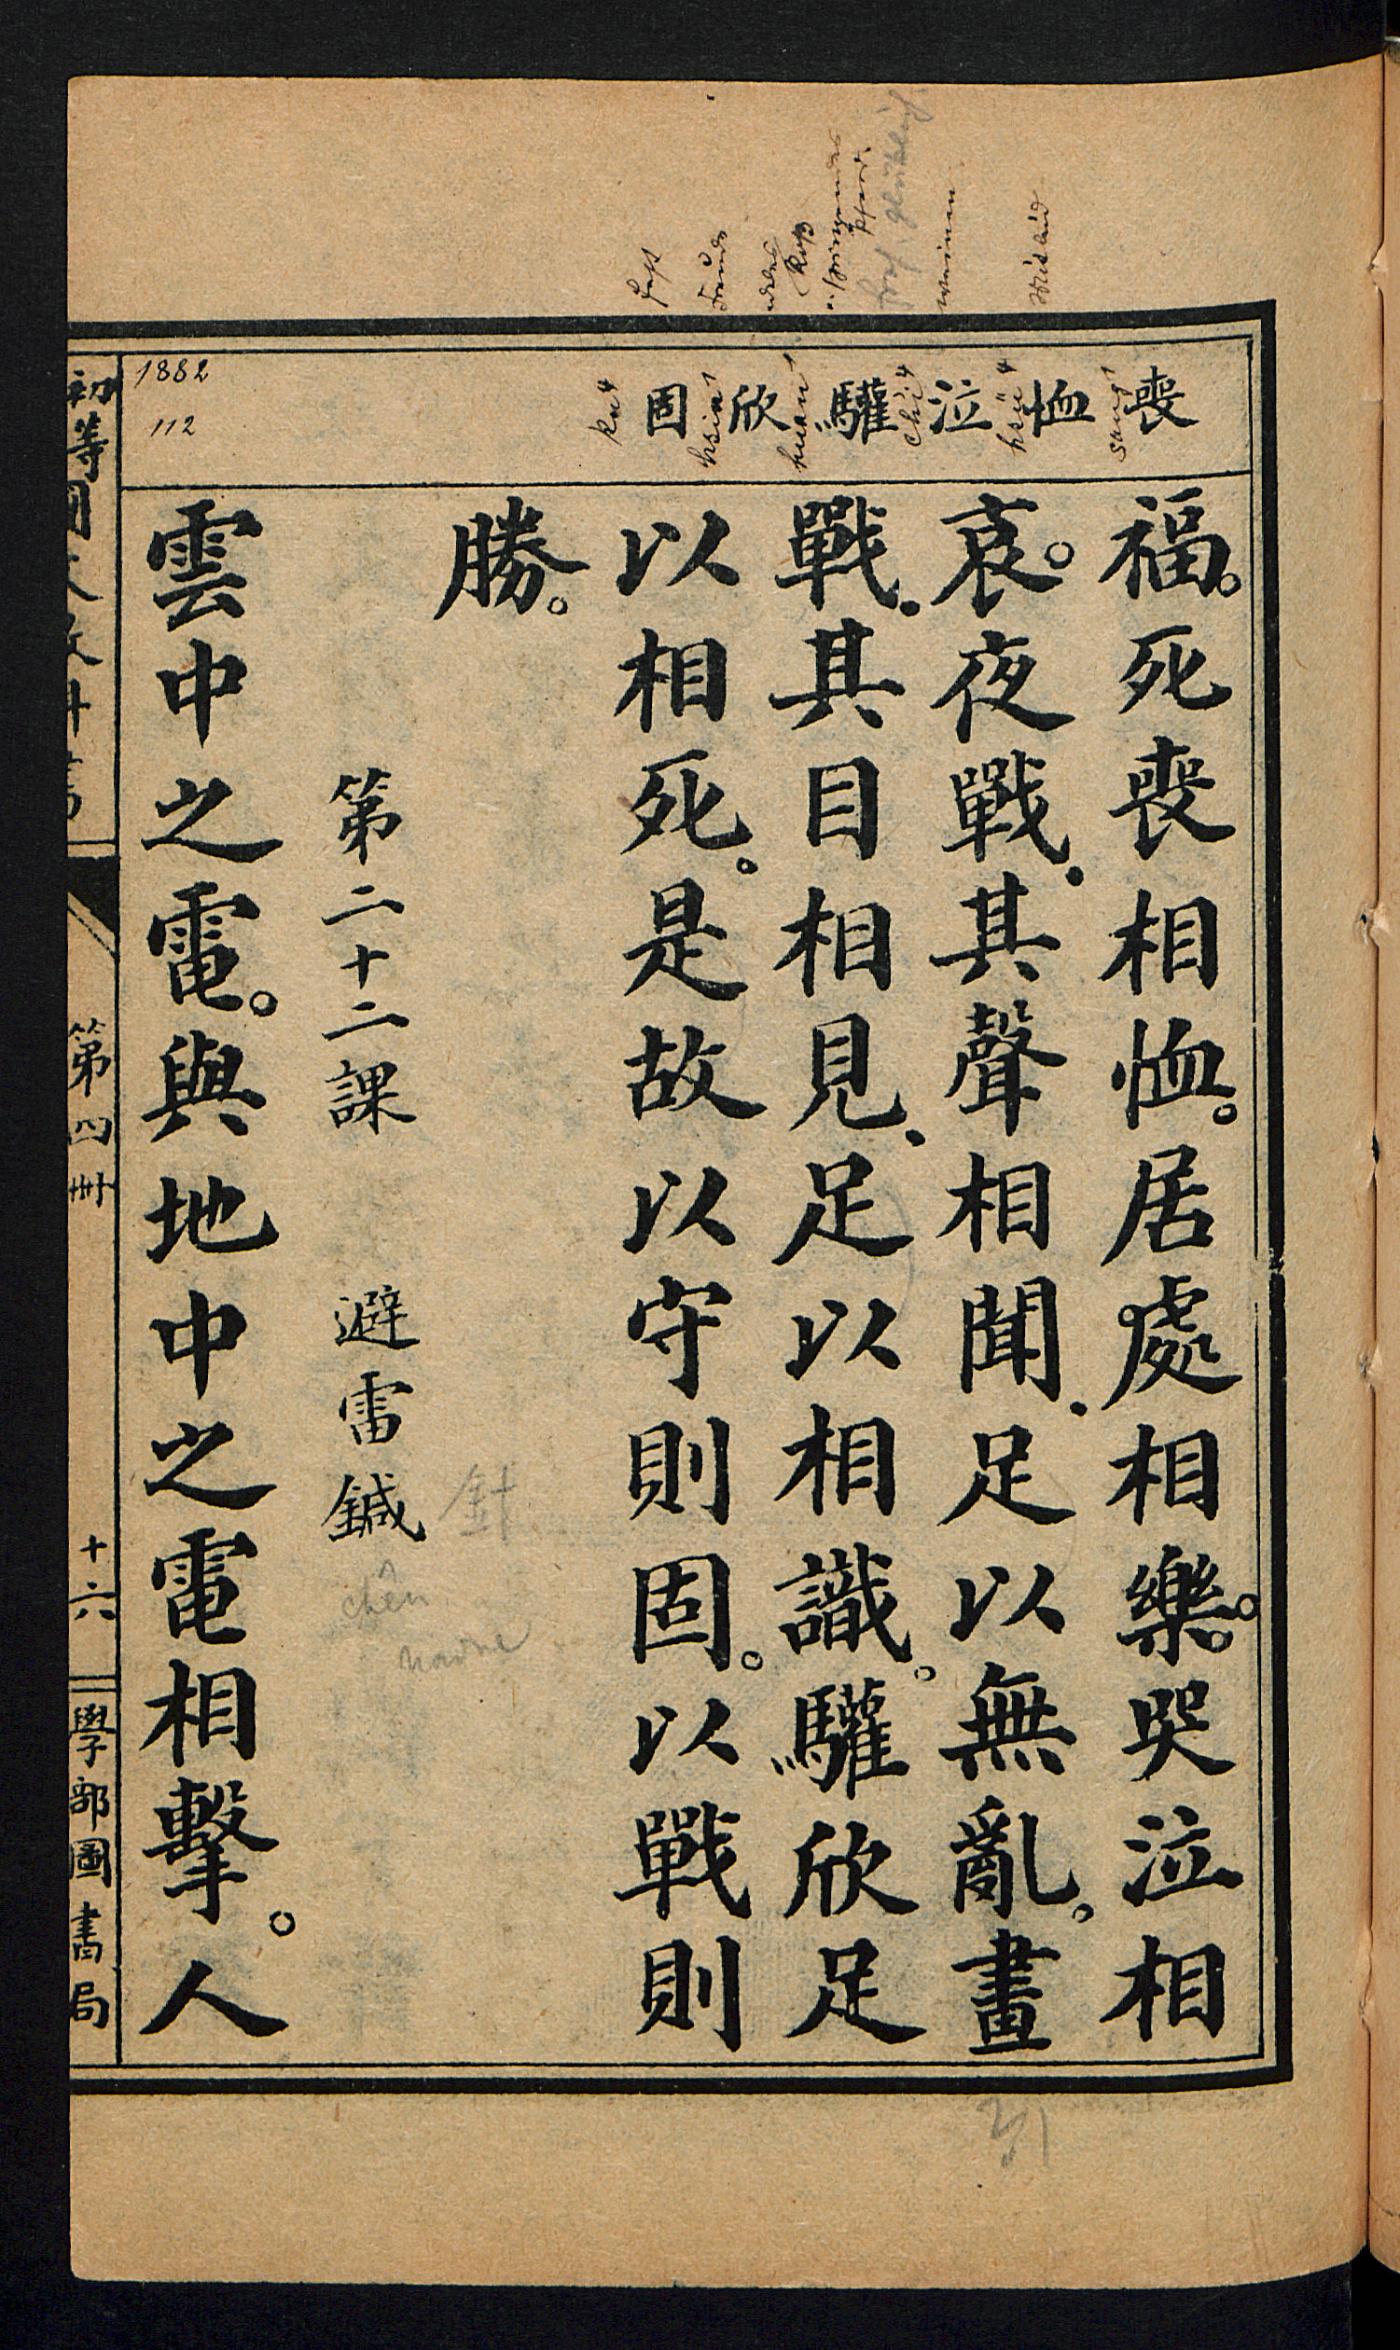 喪恤泣驩欣固
sang1
hsü4
ch'i4
huan1
hsin1
ku4
1882
112
福。死喪相恤。居處相樂。哭泣相
哀。夜戰．其聲相聞．足以無亂。晝
戰．其目相見．足以相識。驩欣足
以相死。是故以守則固。以戰則
勝。
第二十二課　避雷鍼
針
chên
雲中之電。與地中之電相擊。人
第四冊
十六
學部圖書局